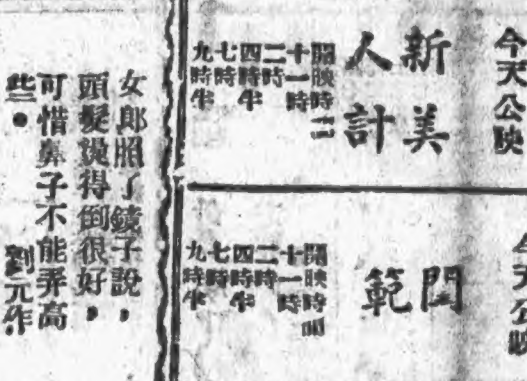 今天公映
新美
人計
開映時間
十一時
二時
四時半
七時
九時半
今天公映
閨範
開映時間
十一時
二時
四時半
七時
九時半
女郎照了鏡子說，
頭髮燙得倒很好，
可惜鼻子不能弄高
些。 劉元作